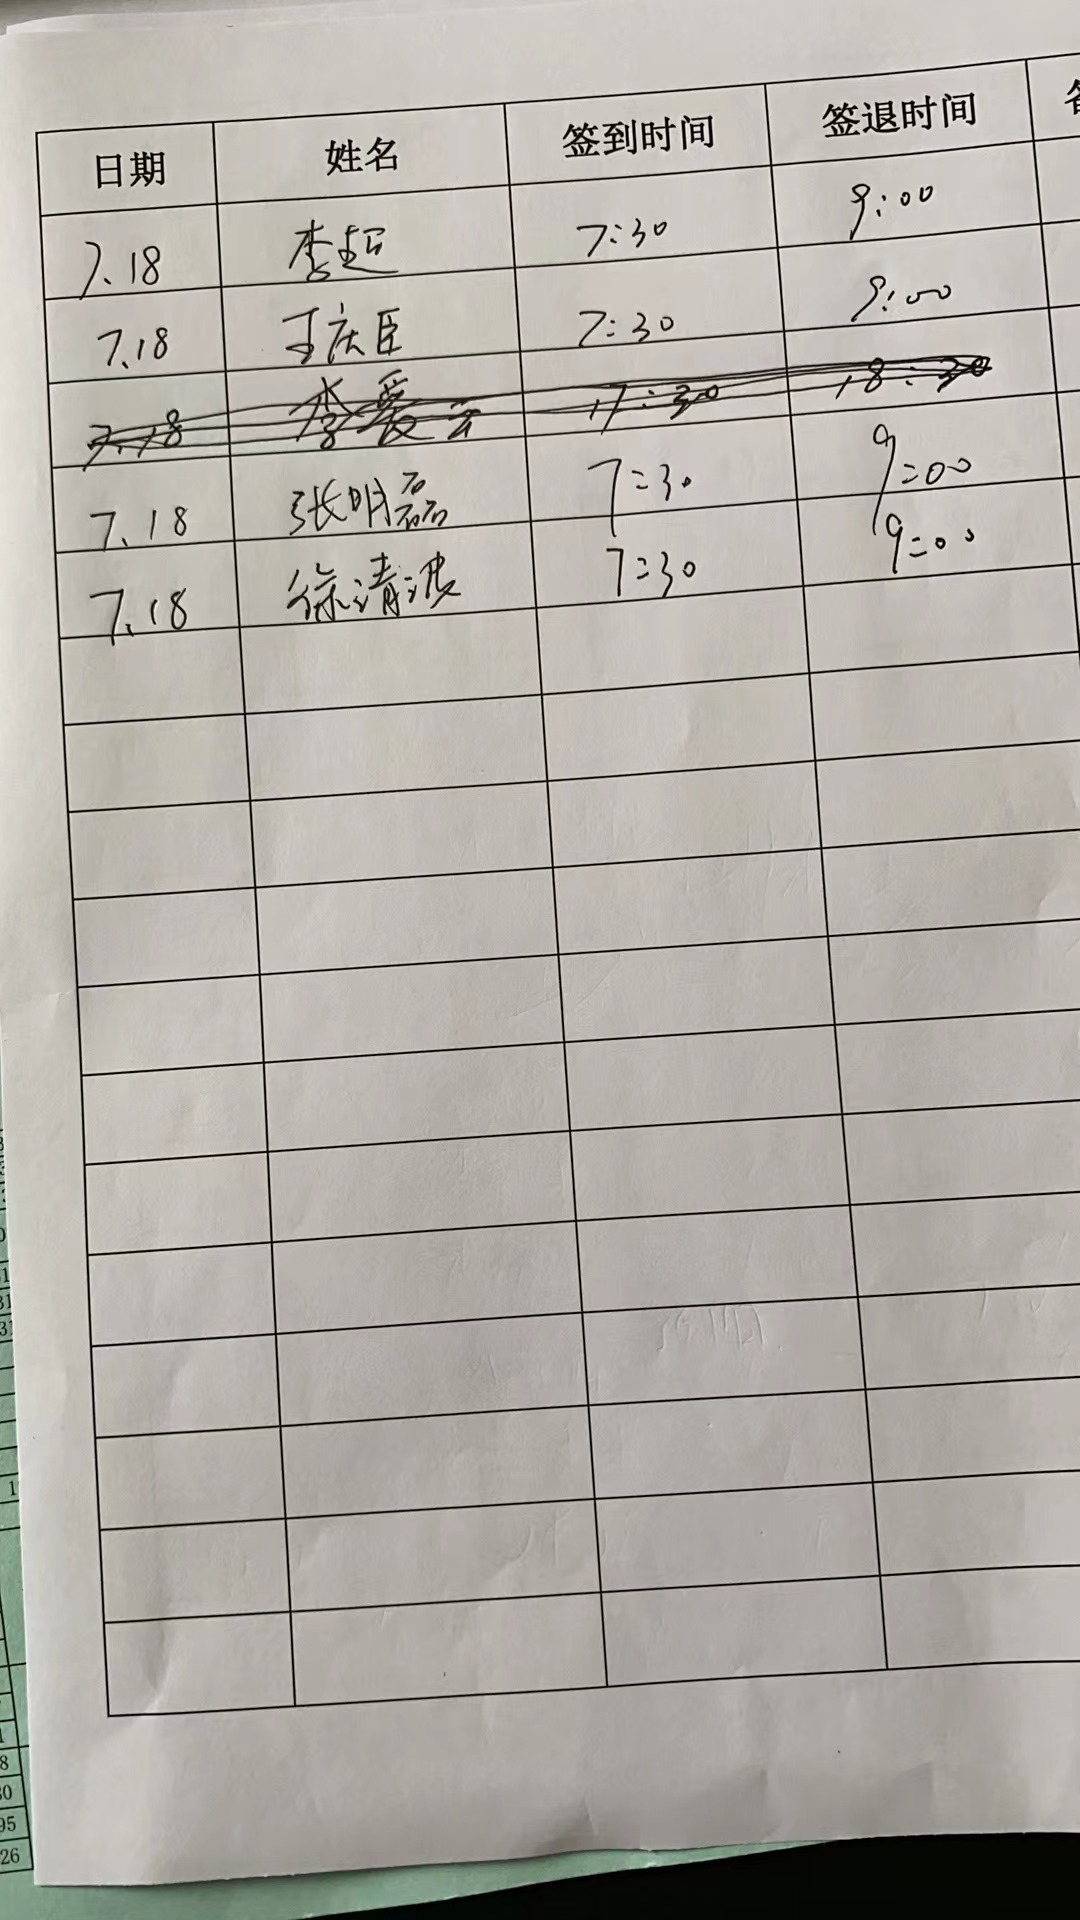 日期 姓名 签到时间 签退时间
7.18 李超 7:30 9:00
7.18 王庆臣 7:30 9:00
7.18 李爱云 17:30 18:30
7.18 张明磊 7:30 9:00
7.18 徐清波 7:30 9:00